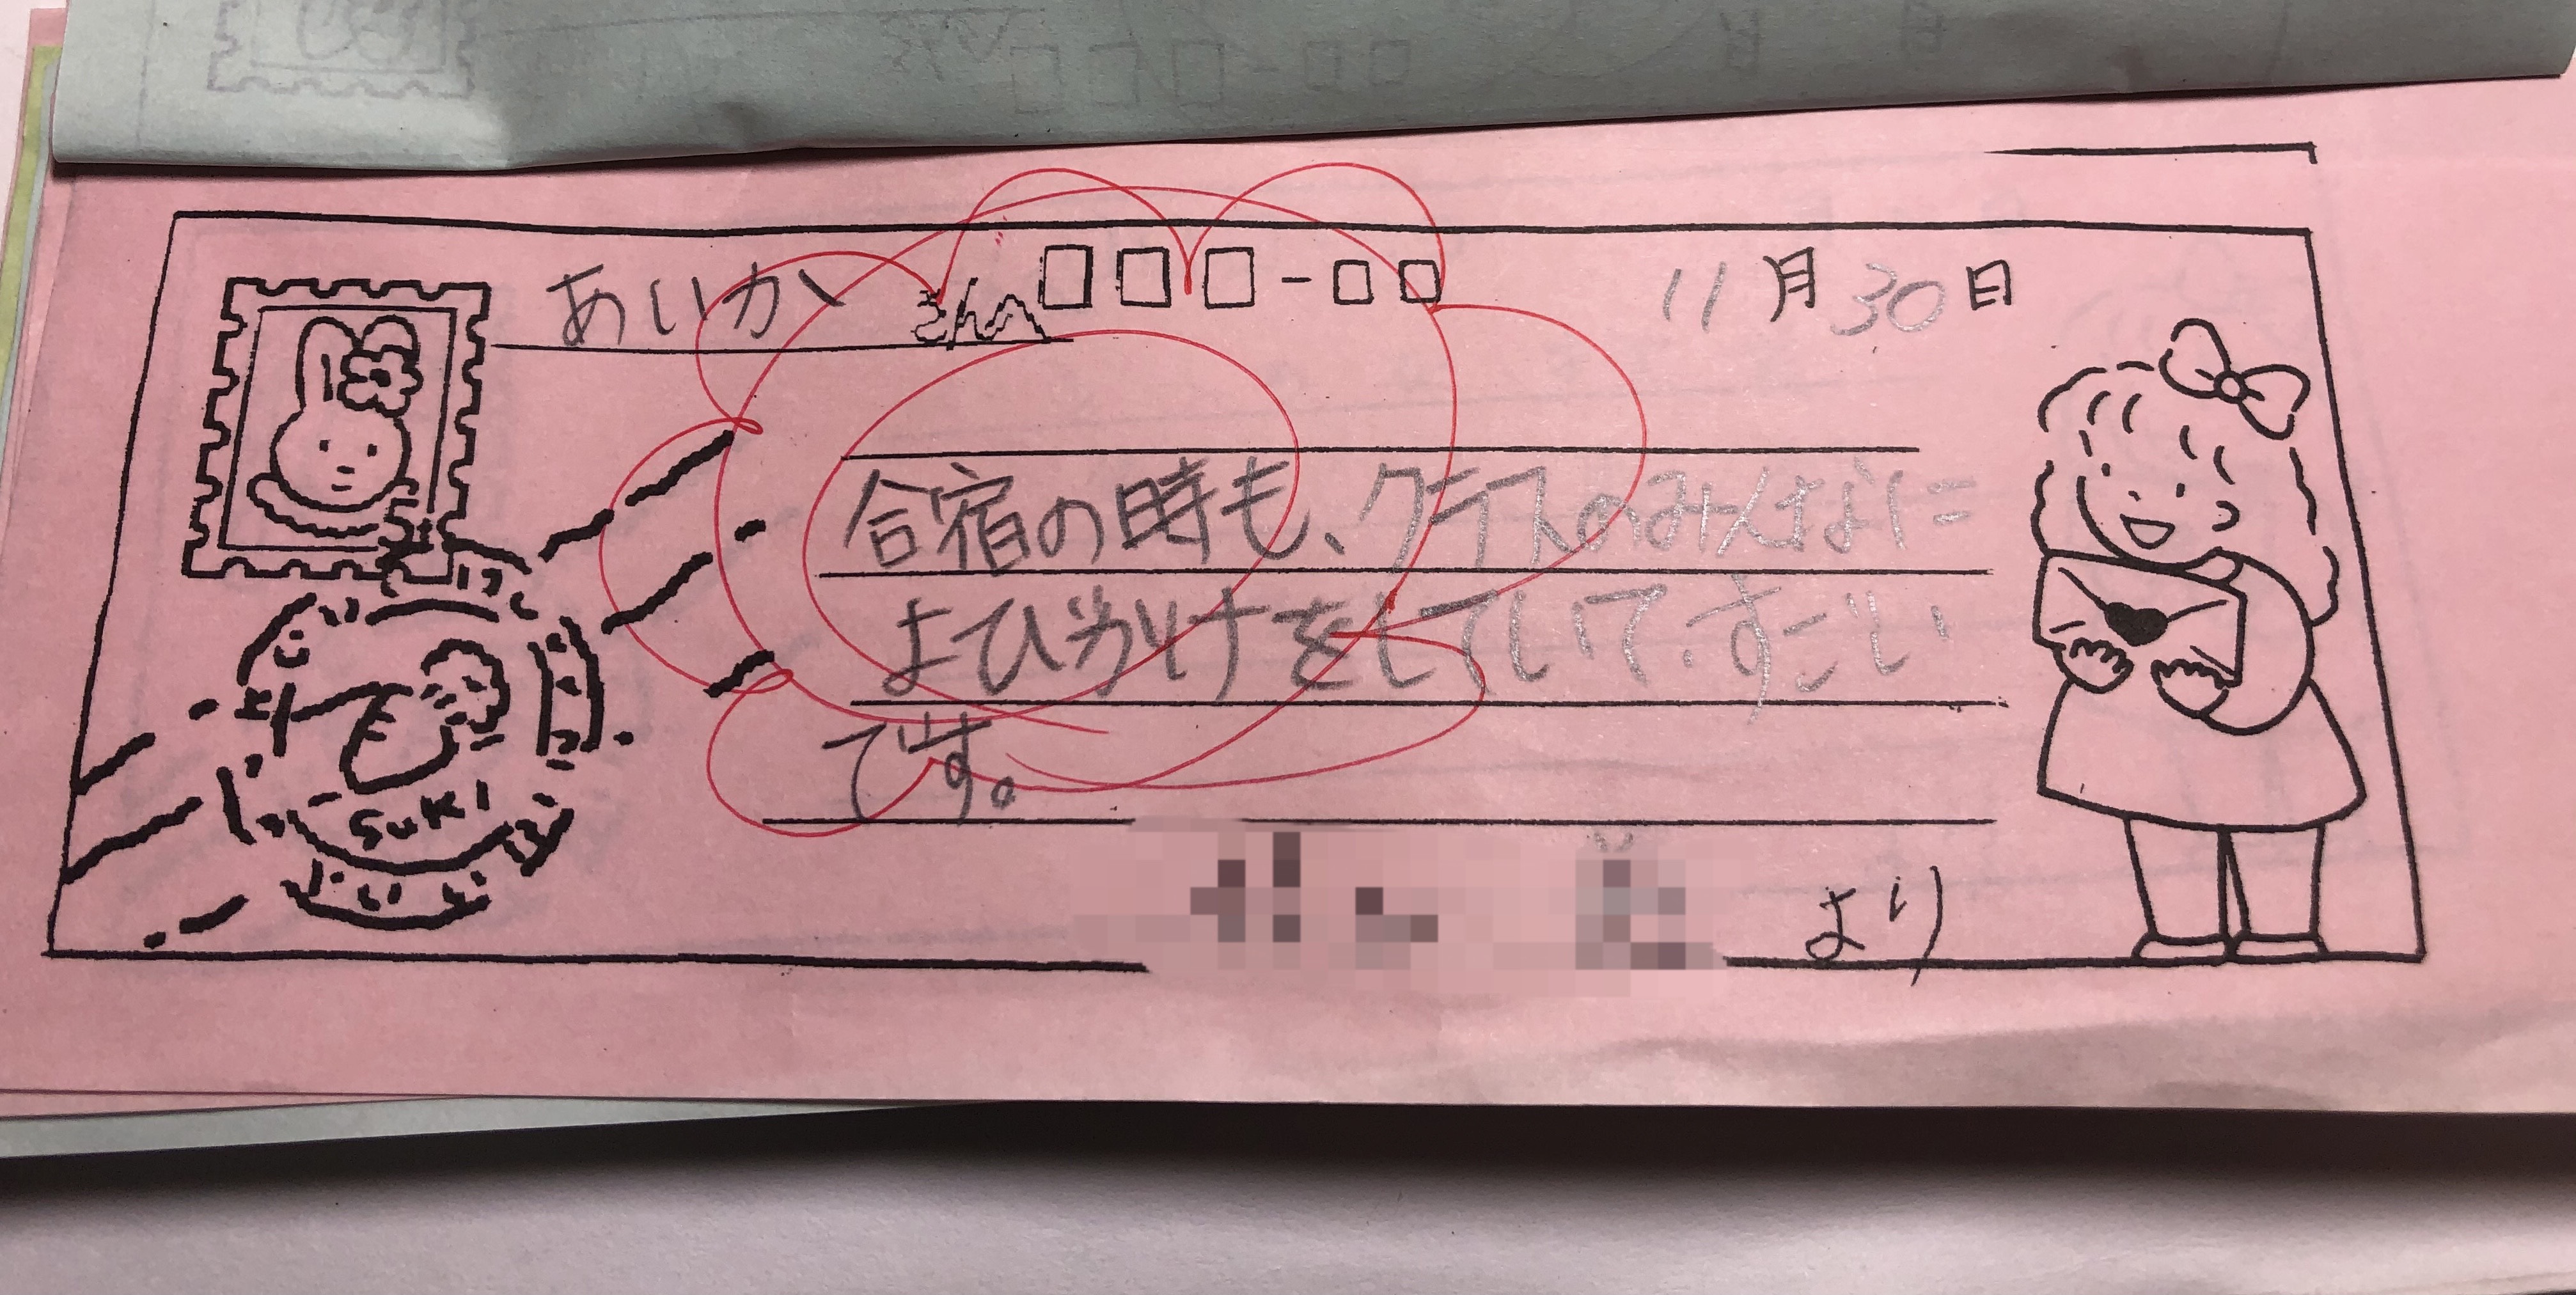 あいかさんへ
11月30日
合宿の時も、クラスのみんなに
よびかけをしていて、すごい
です。
より
SUKI